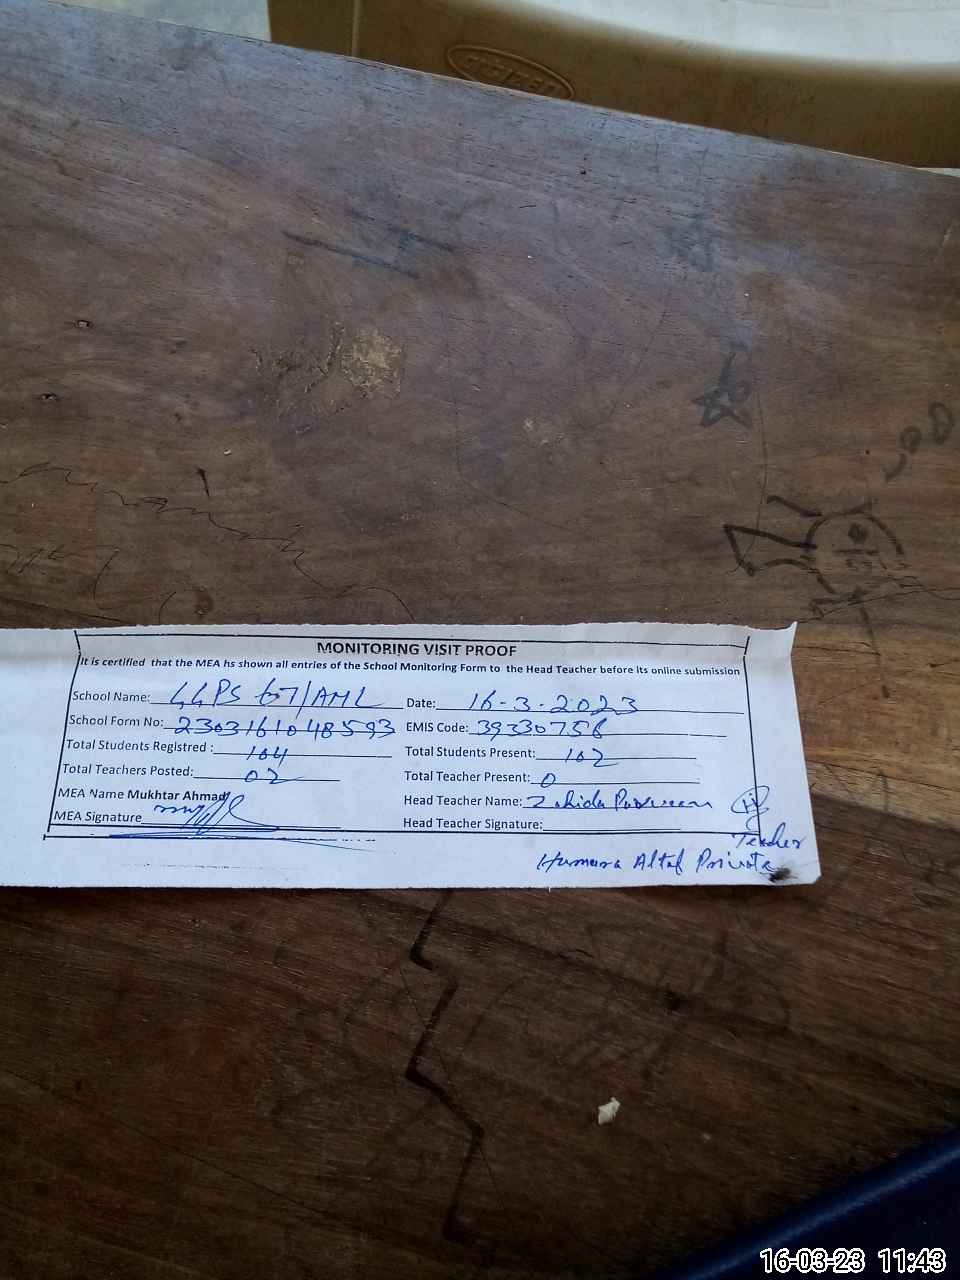 MONITORING VISIT PROOF
It is certified that the MEA hs shown all entries of the School Monitoring Form to the Head Teacher before its online submission
School Name: GGPS 67/AML Date: 16-3-2023
School Form No: 2303161048593 EMIS Code: 39330758
Total Students Registred : 104 Total Students Present: 102
Total Teachers Posted: 02 Total Teacher Present: 0
MEA Name Mukhtar Ahmad Head Teacher Name: Zahida Parveen
MEA Signature Head Teacher Signature:
Teacher
Humera Altaf Private
16-03-23 11:43